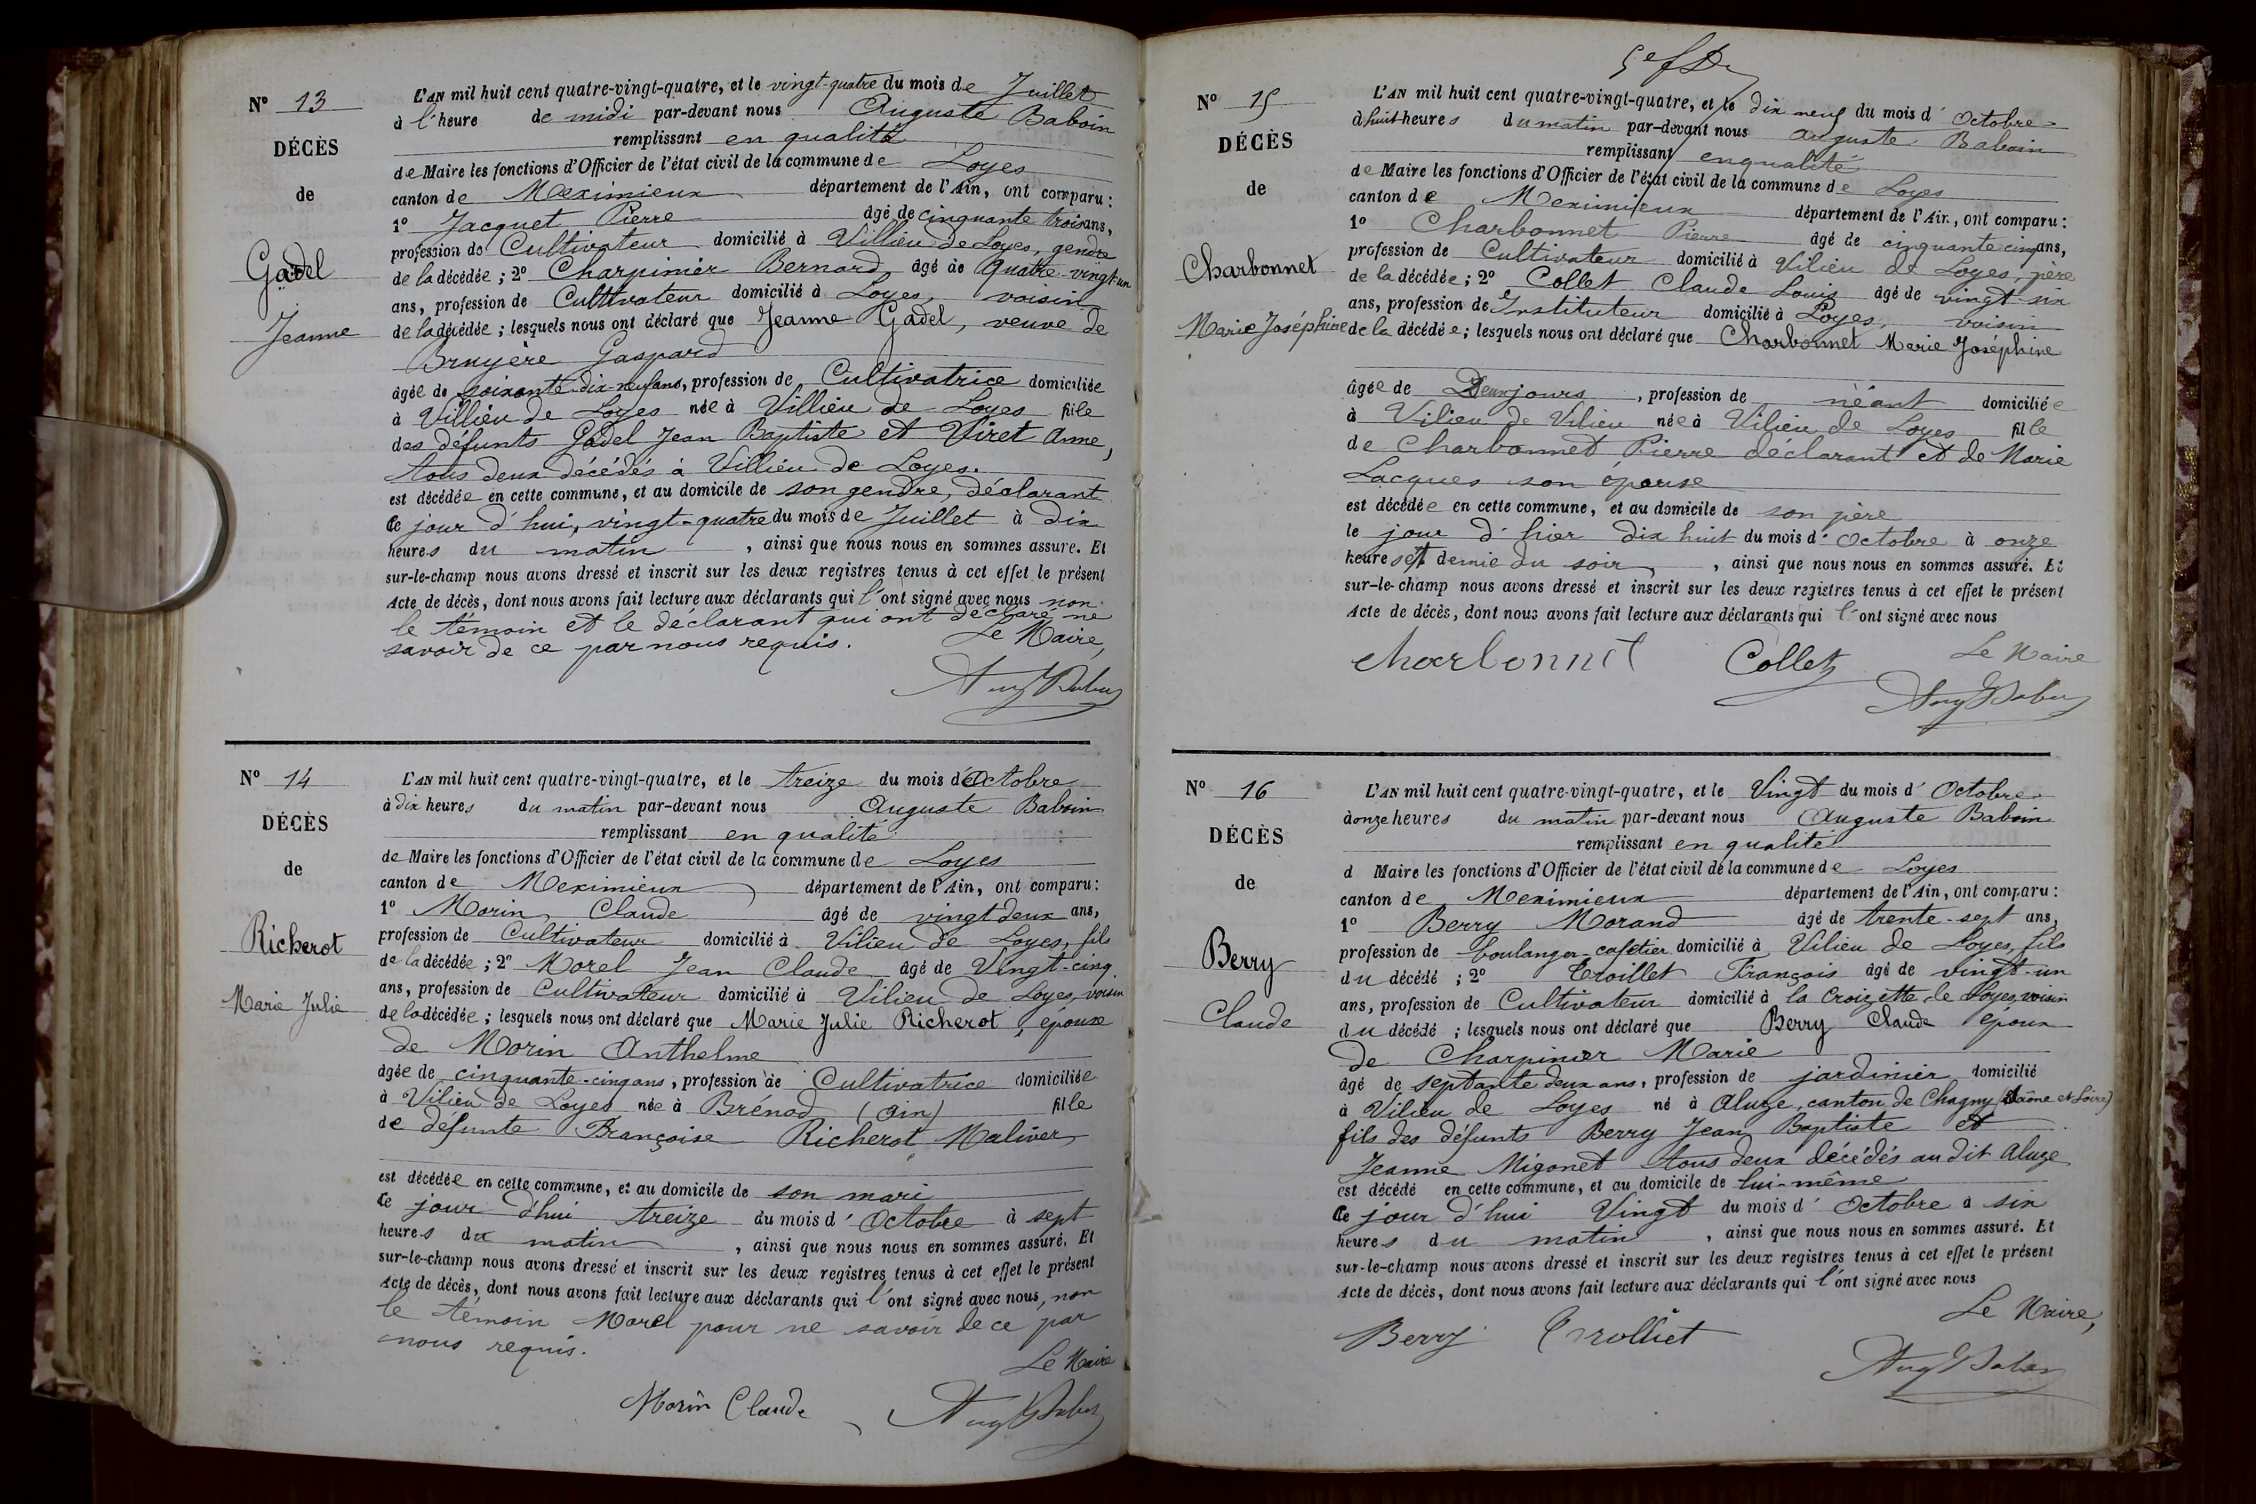 N° 13
DÉCÈS
de
Gadel
Jeanne
L'AN mil huit cent quatre-vingt-quatre, et le vingt-quatre du mois de Juillet
à l'heure de midi par-devant nous Auguste Baboin
remplissant en qualité
de Maire les fonctions d'Officier de l'état civil de la commune de Loyes
canton de Meximieux département de l'Ain, ont comparu :
1° Jacquet Pierre âgé de cinquante trois ans,
profession de Cultivateur domicilié à Villieu de Loyes, gendre
de la décédée ; 2° Charpinier Bernard âgé de quatre-vingt-un
ans, profession de Cultivateur domicilié à Loyes, voisin
de la décédée ; lesquels nous ont déclaré que Jeanne Gadel, veuve de
Bruyère Gaspard
âgée de soixante-dix-neuf ans, profession de Cultivatrice domiciliée
à Villieu de Loyes née à Villieu de Loyes fille
des défunts Gadel Jean Baptiste et Viret Anne,
tous deux décédés à Villieu de Loyes.
est décédée en cette commune, et au domicile de son gendre, déclarant
ce jour d'hui, vingt-quatre du mois de Juillet à dix
heures du matin , ainsi que nous nous en sommes assuré. Et
sur-le-champ nous avons dressé et inscrit sur les deux registres tenus à cet effet le présent
Acte de décès, dont nous avons fait lecture aux déclarants qui l'ont signé avec nous non
le témoin et le déclarant qui ont déclaré ne
savoir de ce par nous requis. Le Maire,
Aug Baboin
N° 14
DÉCÈS
de
Richerot
Marie Julie
L'AN mil huit cent quatre-vingt-quatre, et le treize du mois d'Octobre
à dix heures du matin par-devant nous Auguste Baboin
remplissant en qualité
de Maire les fonctions d'Officier de l'état civil de la commune de Loyes
canton de Meximieux département de l'Ain, ont comparu :
1° Morin Claude âgé de vingt deux ans,
profession de Cultivateur domicilié à Vilieu de Loyes, fils
de la décédée ; 2° Morel Jean Claude âgé de Vingt-cinq
ans, profession de Cultivateur domicilié à Vilieu de Loyes, voisin
de la décédée ; lesquels nous ont déclaré que Marie Julie Richerot, épouse
de Morin Anthelme
âgée de cinquante-cinq ans, profession de Cultivatrice domiciliée
à Vilieu de Loyes née à Brénod (Ain) fille
de défunte Françoise Richerot Maliver
est décédée en cette commune, et au domicile de son mari
ce jour d'hui treize du mois d'Octobre à sept
heures du matin , ainsi que nous nous en sommes assuré. Et
sur-le-champ nous avons dressé et inscrit sur les deux registres tenus à cet effet le présent
Acte de décès, dont nous avons fait lecture aux déclarants qui l'ont signé avec nous, non
le témoin Morel pour ne savoir de ce par
nous requis.
Le Maire
Morin Claude Aug Baboin
N° 15
DÉCÈS
de
Charbonnet
Marie Joséphine
L'AN mil huit cent quatre-vingt-quatre, et le dix neuf du mois d'Octobre
à huit heures du matin par-devant nous Auguste Baboin
remplissant en qualité
de Maire les fonctions d'Officier de l'état civil de la commune de Loyes
canton de Meximieux département de l'Ain, ont comparu :
1° Charbonnet Pierre âgé de cinquante cinq ans,
profession de Cultivateur domicilié à Vilieu de Loyes, père
de la décédée ; 2° Collet Claude Louis âgé de vingt-six
ans, profession de Instituteur domicilié à Loyes, voisin
de la décédée ; lesquels nous ont déclaré que Charbonnet Marie Joséphine
âgée de Deux jours , profession de néant domiciliée
à Vilieu de Vilieu née à Vilieu de Loyes fille
de Charbonnet Pierre déclarant et de Marie
Lacques son épouse
est décédée en cette commune, et au domicile de son père
le jour d'hier dix huit du mois d'Octobre à onze
heures et demie du soir , ainsi que nous nous en sommes assuré. Et
sur-le-champ nous avons dressé et inscrit sur les deux registres tenus à cet effet le présent
Acte de décès, dont nous avons fait lecture aux déclarants qui l'ont signé avec nous
Charbonnet Collet Le Maire
Aug Baboin
N° 16
DÉCÈS
de
Berry
Claude
L'AN mil huit cent quatre-vingt-quatre, et le Vingt du mois d'Octobre
à onze heures du matin par-devant nous Auguste Baboin
remplissant en qualité
d Maire les fonctions d'Officier de l'état civil de la commune de Loyes
canton de Meximieux département de l'Ain, ont comparu :
1° Berry Morand âgé de trente-sept ans,
profession de boulanger-cafetier domicilié à Vilieu de Loyes, fils
du décédé ; 2° Trolliet François âgé de vingt-un
ans, profession de Cultivateur domicilié à la Croizette de Loyes, voisin
du décédé ; lesquels nous ont déclaré que Berry Claude époux
de Charpinier Marie
âgé de septante deux ans, profession de jardinier domicilié
à Vilieu de Loyes né à Aluze, canton de Chagny (Saône et Loire)
fils des défunts Berry Jean Baptiste et
Jeanne Migonet tous deux décédés au dit Aluze
est décédé en cette commune, et au domicile de lui-même
ce jour d'hui Vingt du mois d'Octobre à six
heures du matin , ainsi que nous nous en sommes assuré. Et
sur-le-champ nous avons dressé et inscrit sur les deux registres tenus à cet effet le présent
Acte de décès, dont nous avons fait lecture aux déclarants qui l'ont signé avec nous
Le Maire,
Berry Trolliet
Aug Baboin